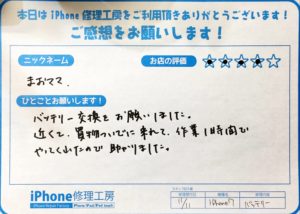 本日は iPhone 修理工房をご利用頂きありがとうございます！
ご感想をお願いします！
ニックネーム
お店の評価
まおママ.
ひとことお願いします！
バッテリー交換をお願いしました。
近くて、買物ついでに来れて、作業1時間で
やってくれたので助かりました。
iPhone修理工房
11/11
iPhone7
バッテリー